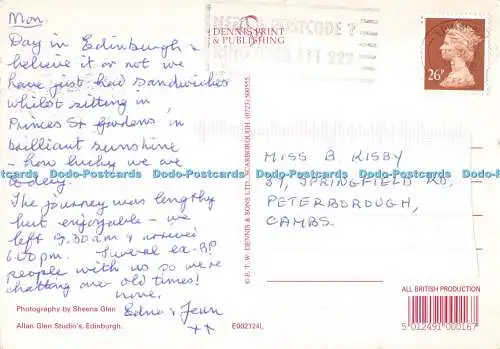 Mon.
Day in Edinburgh &
believe it or not we
have just had sandwiches
whilst sitting in
Princes St gardens in
brilliant sunshine
- how lucky we are
today.
The journey was lengthy
but enjoyable - we
left 9.30am & arrived
6.00pm. Several ex-BP
people with us so we're
chatting over old times!
more,
Edna & Jean
xx
Photography by Sheena Glen
Allan Glen Studio's, Edinburgh.
E002124L
DENNIS PRINT
& PUBLISHING
POSTCODE?
© E. T. W. DENNIS & SONS LTD. SCARBOROUGH. (0723) 500555.
26P
MISS B. KISBY
37, SPRINGFIELD RD,
PETERBOROUGH,
CAMBS.
Dodo-Postcards Dodo-Postcards Dodo-Postcards Dodo-Postcards
ALL BRITISH PRODUCTION
5 012491 000167